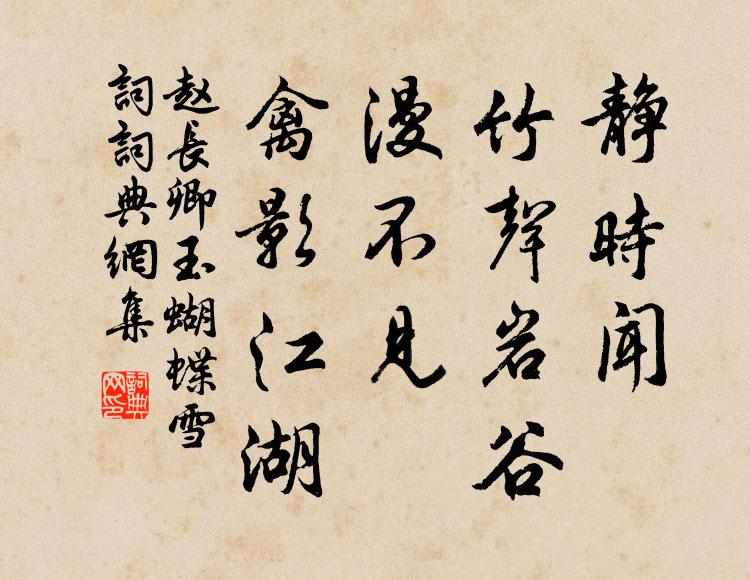 静時聞
竹聲岩谷
漫不見
禽影江湖
赵長卿玉蝴蝶雪
詞詞典網集
詞典
网印